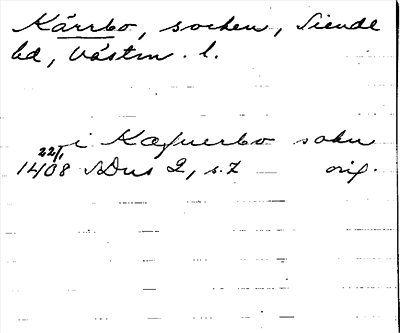 Kärrbo, socken, Siende
hd, Västm. l.
i Kæfuerbo sokn
22/1 1408 SDns 2, s. 7 orig.